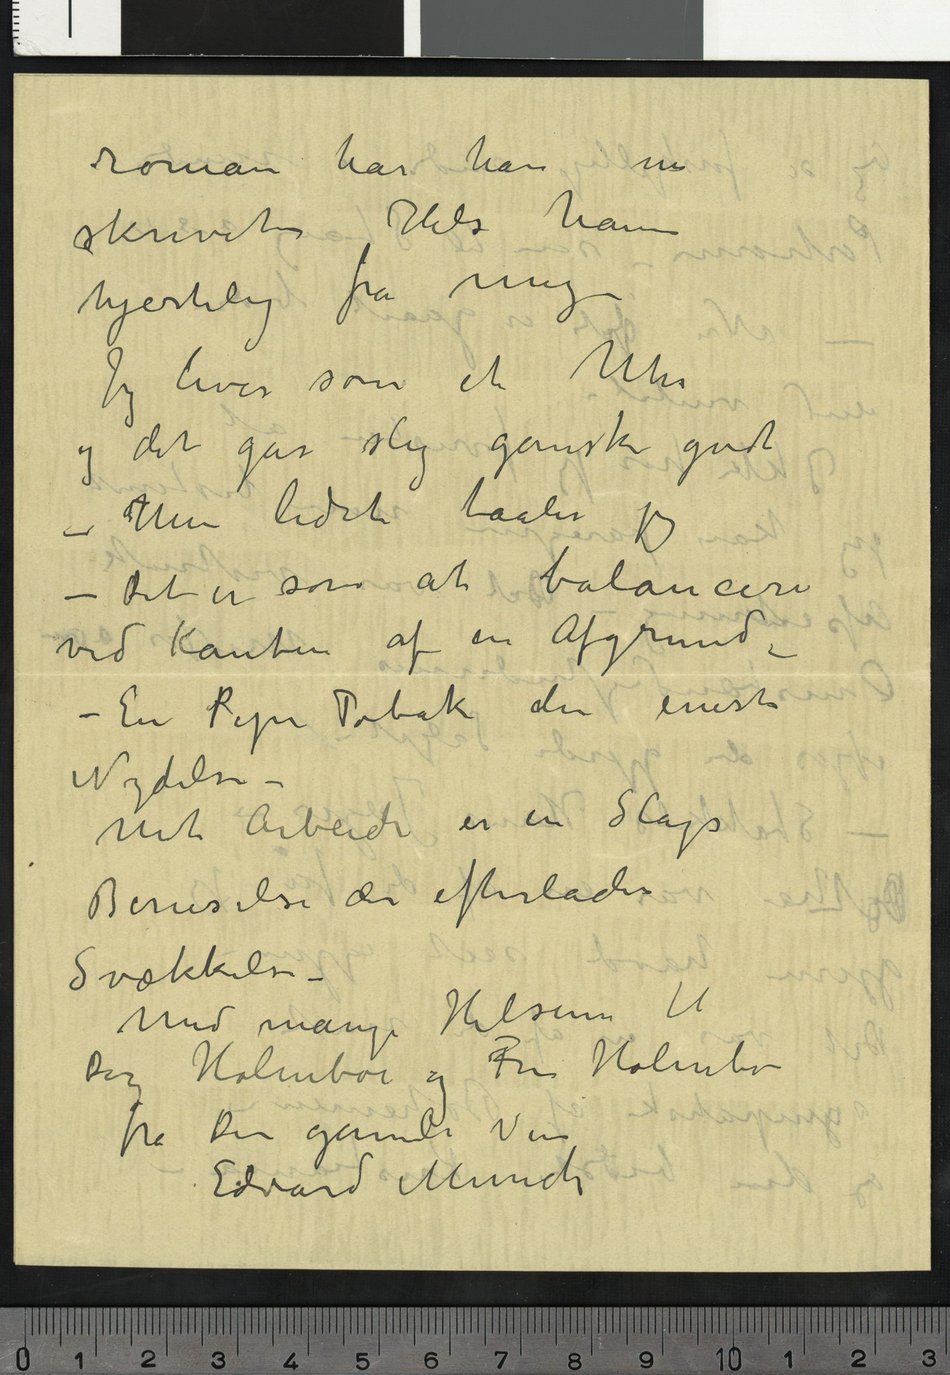 roman har han nu
skrevet Hils ham
hjertelig fra mig –
Jeg lever som et Uhr
og det går slig ganske godt
– Men lidet taaler jeg
– Det er som at balancere
ved Kanten af en Afgrund –
– En Pipe Tobak den eneste
Nydelse –
Mit Arbeide er en Slags
Beruselse der efterlader
Svækkelse –
Med mange Hilsener til
Dig Holmboe og Fru Holmboe
fra Din gamle Ven
Edvard Munch
0 1 2 3 4 5 6 7 8 9 10 1 2 3